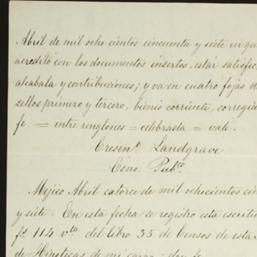 Abril de mil ocho cientos cincuenta y siete en qu
acreditó con los documentos insertos, estar satisfec
alcabala y contribuciones; y va en cuatro fojas d
sellos primero y tercero, bienio corriente, corregid
fe = entre renglones = celebrasta = vale.
Crescen.º Landgrave
Esno. Pub.co
Mejico Abril catorce de mil ochocientos cin
y siete. En esta fecha se registró esta escritu
fs. 114 v.ta del libro 35 de Censos de esta
de Hipotecas de mi cargo; doy fe